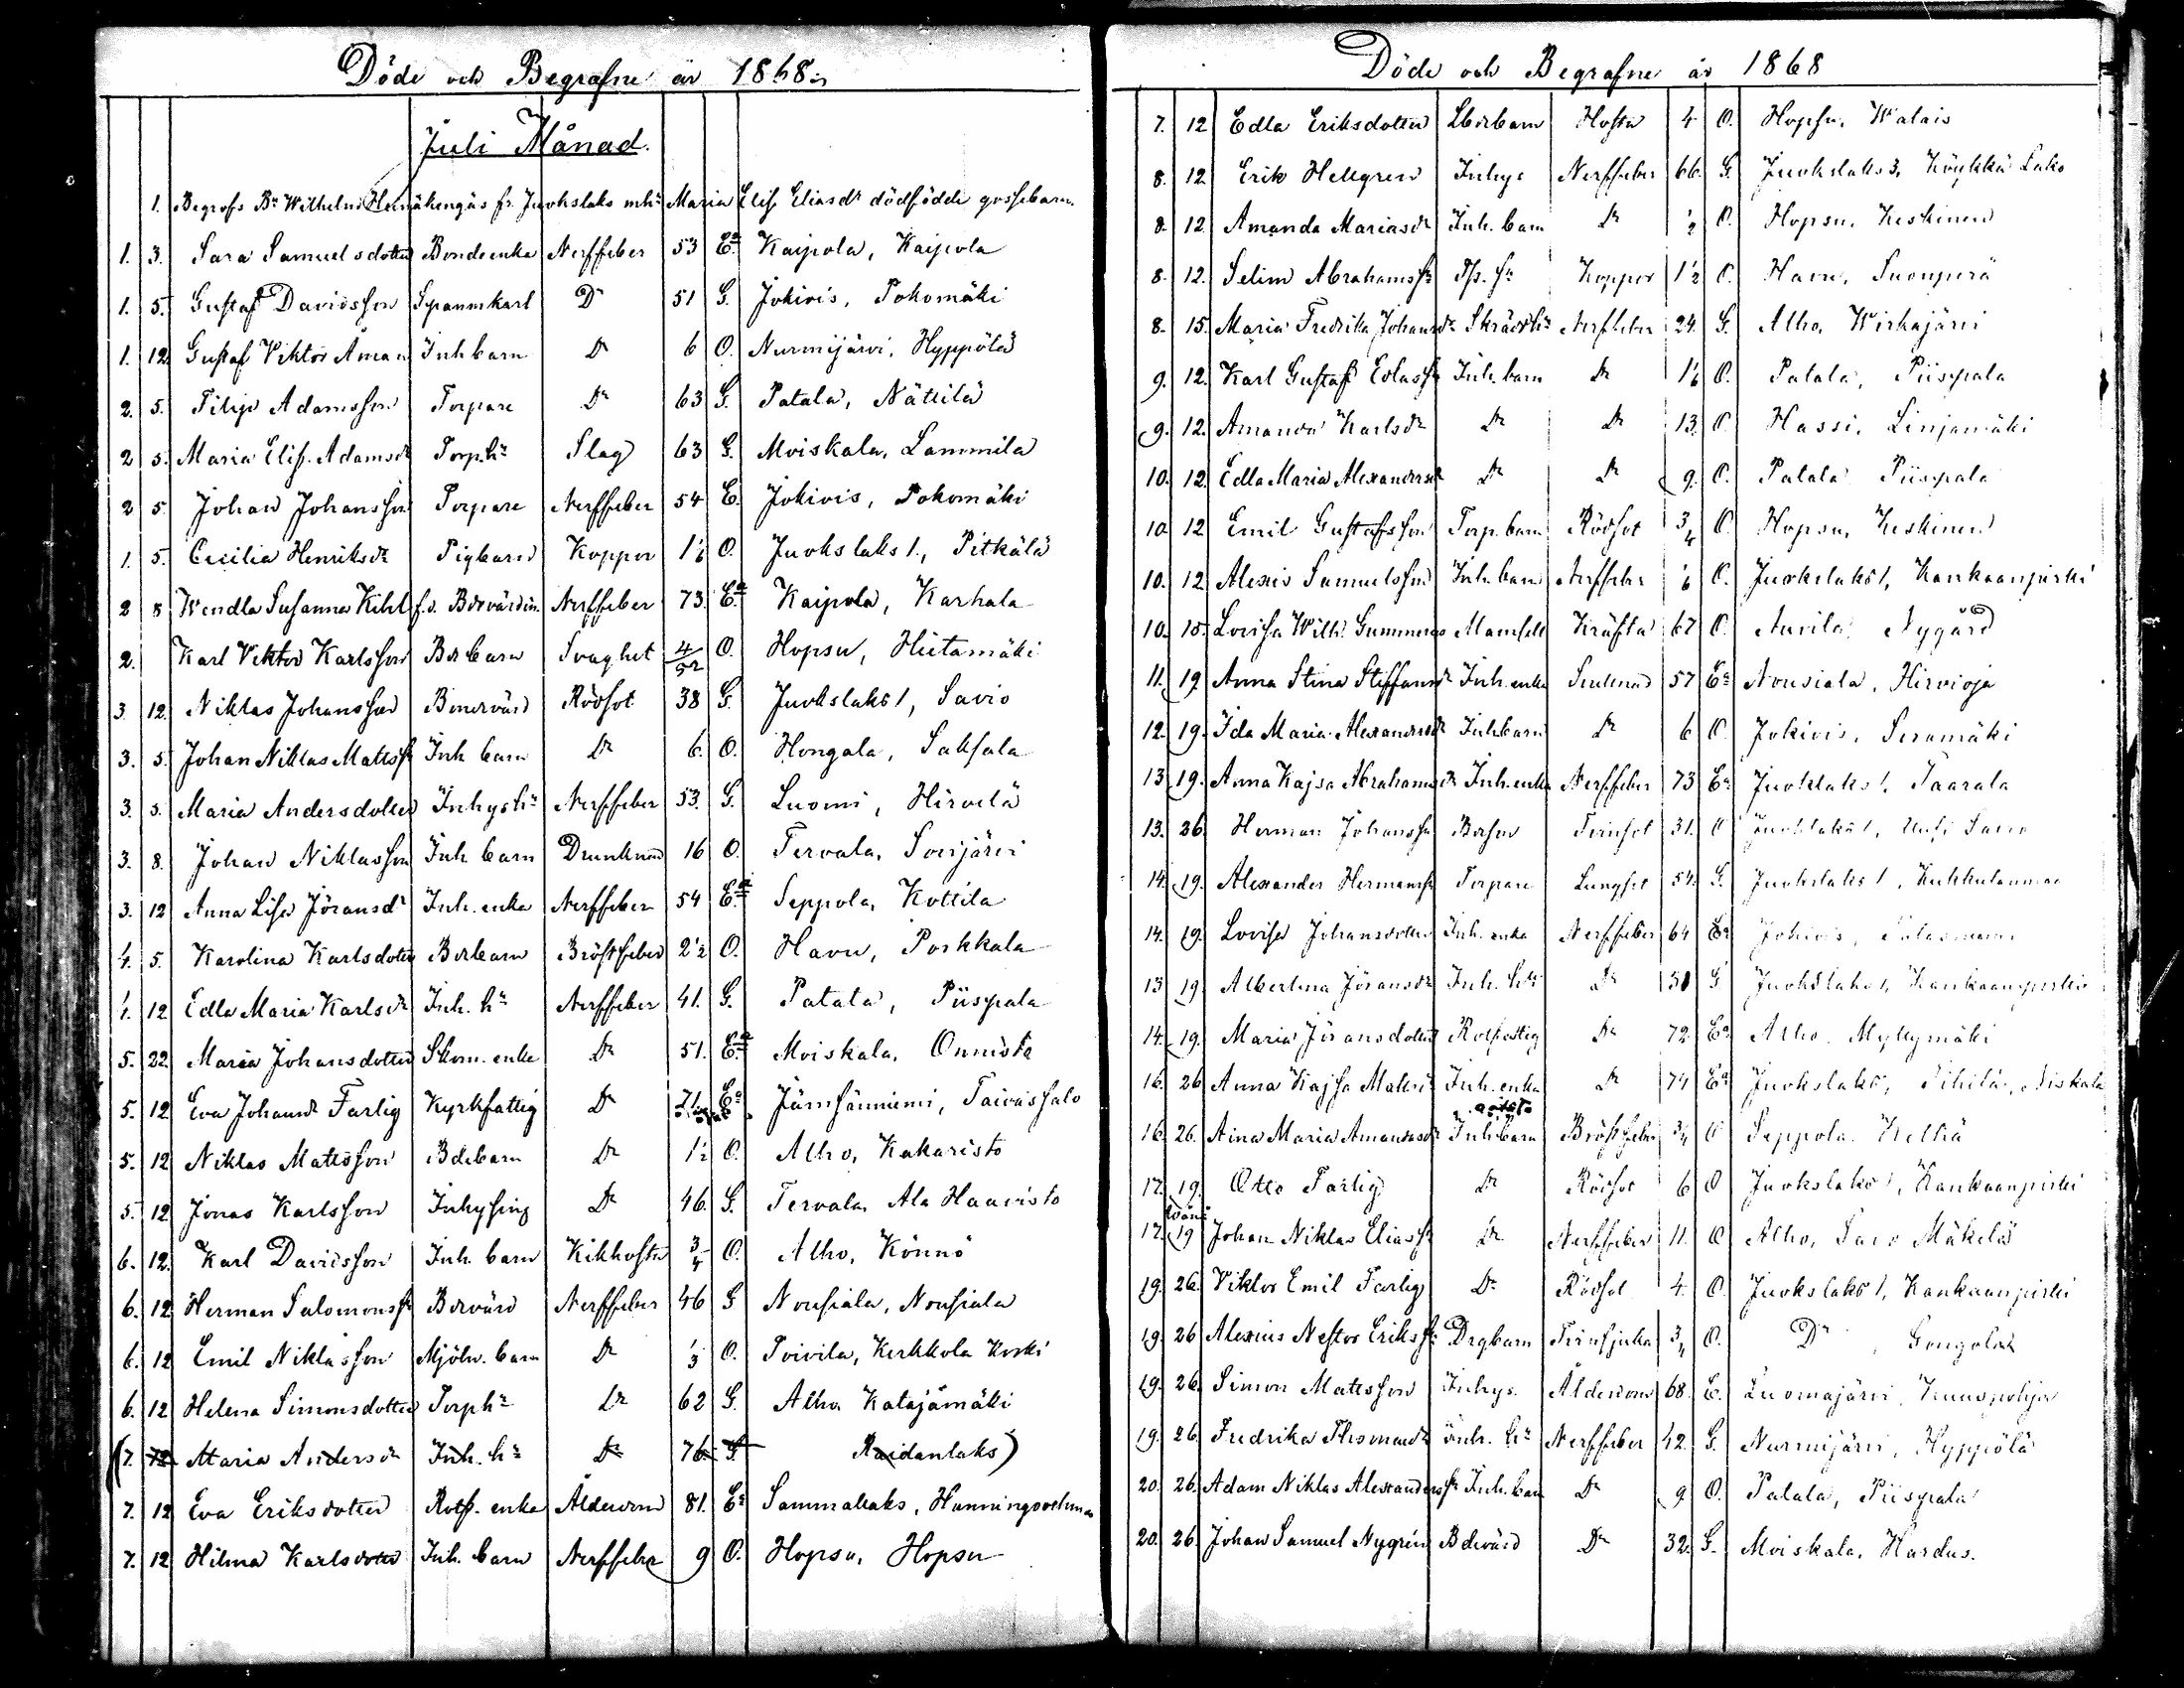 Döde och Begrafne år 1868.
Juli Månad.
1. Begrofs Br Wilhelm Heinäkengäs fr. Juokslaks m hu Maria Elis. Eliasdr dödfödde gossebarn
1. 3. Sara Samuelsdotter Bondeenka Nerffeber 53 Ea Kaipola, Kaipola
1. 5. Gustaf Davidsson Spannkarl Do 51 G. Jokivis, Pokomäki
1. 12. Gustaf Viktor Åman Inh barn Do 6 O. Nurmijärvi, Hyppölä
2. 5. Filip Adamsson Torpare Do 63 G. Patala, Nättilä
2 5. Maria Elis. Adamsdr Torp.hu Slag 63 G. Moiskala, Lammila
2 5. Johan Johansson Torpare Nerffeber 54 E. Jokivis, Pokomäki
1. 5. Cecilia Henriksdr Pigbarn Koppor 1/6 O. Juokslaks 1, Pitkälä
2 8 Wendla Susanna Kihl f.d. Bdevärdin. Nerffeber 73. Ea Kaipola, Karhala
2. Karl Viktor Karlsson Bdebarn Svaghet 4/52 O. Hopsu, Hiitamäki
3. 12. Niklas Johansson Bondevärd Rödsot 38 G. Juokslaks 1, Savio
3. 5. Johan Niklas Mattss. Inh barn Do 6. O. Hongala, Saksala
3. 5. Maria Andersdotter Inhyshu Nerffeber 53. G. Luomi, Hirvelä
3. 8. Johan Niklasson Inh barn Drunknad 16 O. Tervala, Sorijärvi
3. 12 Anna Lisa Jöransdr Inh. enka Nerffeber 54 Ea Seppola, Kottila
4. 5. Karolina Karlsdotter Bdebarn Bröstfeber 2 1/2 O. Havu, Porkkala
4. 12 Edla Maria Karlsdr Inh. hu Nerffeber 41. G. Patala, Piispala
5. 22. Maria Johansdotter Skom. enka Do 51. Ea Moiskala, Onnista
5. 12 Eva Johansdr Farlig Kyrkfattig Do 71 Ea Jämsänniemi, Taivassalo
5. 12 Niklas Mattsson Bdebarn Do 1 1/2 O. Alho, Kakaristo
5. 12 Jonas Karlsson Inhysing Do 46. G. Tervala, Ala Haavisto
6. 12. Karl Davidsson Inh. barn Kikhosta 3/4 O. Alho, Könnö
6. 12 Herman Salomonss. Bdevärd Nerffeber 46 G Nousiala, Nousiala
6. 12 Emil Niklasson Mjöln. barn Do 1/3 O. Toivila, Kerkkola Koski
6. 12 Helena Simonsdotter Torphu Do 62 G. Alho, Katajamäki
(7. 12 Maria Andersdr Inh. hu Do 76. G. Raidanlaks)
7. 12 Eva Eriksdotter Rotf. enka Ålderdom 81. Ea Sammallaks, Hunningo
7. 12 Hilma Karlsdotter Inh. barn Nerffeber 9 O. Hopsu, Hopsu
Döde och Begrafne år 1868
7. 12 Edla Eriksdotter barn Hosta 4 O. Hopsu, Walais
8. 12 Erik Hellgren Inhys Nerffeber 66. G. Juokslaks 3, Köykkä Laks
8. 12 Amanda Mariasdr Inh. barn Do 1/2 O. Hopsu, Keskinen
8. 12. Selim Abrahamss. Koppor 1 1/2 O. Havu, Suonperä
8. 15. Maria Fredrika Johansdr Skrädd.hu Nerffeber 24. G. Alho, Wirkajärvi
9. 12. Karl Gustaf Edlass. Inh. barn Do 1/6 O. Patala, Piispala
9. 12. Amanda Karlsdr Do Do 13. O. Hassi, Linjamäki
10. 12 Edla Maria Alexandersdr Do Do 9. O. Patala Piispala
10 12 Emil Gustafsson Torp. barn Rödsot 3/4 O Hopsu, Keskinen
10. 12 Alexis Samuelsson Inh. barn Nerffeber 1/6 O. Juokslaks 1, Kankaanpirtti
10. 15. Lovisa Wilh. Gummerus Mamsell Kräfta 67 O. Auvila, Nygård
11. 19 Anna Stina Stiffansdr Inh. enka 57 Ea Nousiala, Hirvioja
12. 19. Ida Maria Alexandersdr Inh barn Do 6 O. Jokivis, Seramäki
13 19. Anna Kajsa Abrahamsdr Inh. enka Nerffeber 73 Ea Juokslaks 1, Taarala
13. 26 Herman Johanss. Bdeson 31. O Juokslaks 1,
14. 19. Alexander Hermanss. Torpare Lungsot 54. G. Juokslaks 1,
14. 19. Lovisa Johansdotter Inh. enka Nerffeber 64 Ea Jokivis,
13 19 Albertina Jöransdr Inh. hu Do 31 G Juokslaks 1, Kankaanpirtti
14. 19. Maria Jöransdotter Do 72. Ea Alho, Myllymäki
16. 26 Anna Kajsa Mattsdr Inh. enka Do 74 Ea Juokslaks,
16 26. Aina Maria Amandasdr Inh.barn Bröstfeber 3/4 O Seppola,
17. 19. Otto Farlig Do Rödsot 6 O Juokslaks 1, Kankaanpirtti
17. 19 Johan Niklas Eliass. Do Nerffeber 11. O Alho, Mäkelä
19. 26. Viktor Emil Farlig Do Rödsot 4. O. Juokslaks 1, Kankaanpirtti
19. 26 Alexius Nestor Erikss. Drgbarn 3/4 O. Do
19. 26. Simon Mattsson Inhys. Ålderdom 68. E. Luomajärvi,
19. 26. Fredrika Thomasdr Inh. hu Nerffeber 42. G. Nurmijärvi, Hyppölä
20. 26. Adam Niklas Alexanderss. Inh. barn Do 9 O. Patala, Piispala
20. 26. Johan Samuel Nygrén Bdevärd Do 32. G. Moiskala, Hardus.